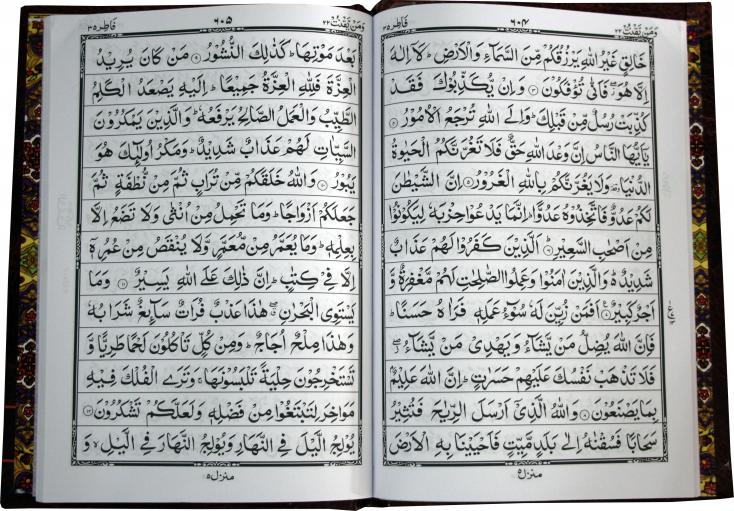 ومن يقنت ٢٢
٦٠٤
فاطر ٣٥
خَالِقٍ غَيْرُ اللّٰهِ يَرْزُقُكُمْ مِّنَ السَّمَآءِ وَالْاَرْضِ ؕ لَاۤ اِلٰهَ
اِلَّا هُوَ ۖ فَاَنّٰى تُؤْفَكُوْنَ ۝۳ وَاِنْ يُّكَذِّبُوْكَ فَقَدْ
كُذِّبَتْ رُسُلٌ مِّنْ قَبْلِكَ ؕ وَاِلَى اللّٰهِ تُرْجَعُ الْاُمُوْرُ ۝۴
يٰۤاَيُّهَا النَّاسُ اِنَّ وَعْدَ اللّٰهِ حَقٌّ فَلَا تَغُرَّنَّكُمُ الْحَيٰوةُ
الدُّنْيَا ۥ وَلَا يَغُرَّنَّكُمْ بِاللّٰهِ الْغَرُوْرُ ۝۵ اِنَّ الشَّيْطٰنَ
لَكُمْ عَدُوٌّ فَاتَّخِذُوْهُ عَدُوًّا ؕ اِنَّمَا يَدْعُوْا حِزْبَهٗ لِيَكُوْنُوْا
مِنْ اَصْحٰبِ السَّعِيْرِ ۝۶ اَلَّذِيْنَ كَفَرُوْا لَهُمْ عَذَابٌ
شَدِيْدٌ ؕ وَالَّذِيْنَ اٰمَنُوْا وَعَمِلُوا الصّٰلِحٰتِ لَهُمْ مَّغْفِرَةٌ وَّ
اَجْرٌ كَبِيْرٌ ۝۷ اَفَمَنْ زُيِّنَ لَهٗ سُوْٓءُ عَمَلِهٖ فَرَاٰهُ حَسَنًا ؕ
فَاِنَّ اللّٰهَ يُضِلُّ مَنْ يَّشَآءُ وَيَهْدِيْ مَنْ يَّشَآءُ ۖ
فَلَا تَذْهَبْ نَفْسُكَ عَلَيْهِمْ حَسَرٰتٍ ؕ اِنَّ اللّٰهَ عَلِيْمٌۢ
بِمَا يَصْنَعُوْنَ ۝۸ وَاللّٰهُ الَّذِيْۤ اَرْسَلَ الرِّيٰحَ فَتُثِيْرُ
سَحَابًا فَسُقْنٰهُ اِلٰى بَلَدٍ مَّيِّتٍ فَاَحْيَيْنَا بِهِ الْاَرْضَ
منزل ٥
ومن يقنت ٢٢
٦٠٥
فاطر ٣٥
بَعْدَ مَوْتِهَا ؕ كَذٰلِكَ النُّشُوْرُ ۝۹ مَنْ كَانَ يُرِيْدُ
الْعِزَّةَ فَلِلّٰهِ الْعِزَّةُ جَمِيْعًا ؕ اِلَيْهِ يَصْعَدُ الْكَلِمُ
الطَّيِّبُ وَالْعَمَلُ الصَّالِحُ يَرْفَعُهٗ ؕ وَالَّذِيْنَ يَمْكُرُوْنَ
السَّيِّاٰتِ لَهُمْ عَذَابٌ شَدِيْدٌ ؕ وَمَكْرُ اُولٰٓئِكَ هُوَ
يَبُوْرُ ۝۱۰ وَاللّٰهُ خَلَقَكُمْ مِّنْ تُرَابٍ ثُمَّ مِنْ نُّطْفَةٍ ثُمَّ
جَعَلَكُمْ اَزْوَاجًا ؕ وَمَا تَحْمِلُ مِنْ اُنْثٰى وَلَا تَضَعُ اِلَّا
بِعِلْمِهٖ ؕ وَمَا يُعَمَّرُ مِنْ مُّعَمَّرٍ وَّلَا يُنْقَصُ مِنْ عُمُرِهٖۤ
اِلَّا فِيْ كِتٰبٍ ؕ اِنَّ ذٰلِكَ عَلَى اللّٰهِ يَسِيْرٌ ۝۱۱ وَمَا
يَسْتَوِى الْبَحْرٰنِ ۖ هٰذَا عَذْبٌ فُرَاتٌ سَآئِغٌ شَرَابُهٗ
وَهٰذَا مِلْحٌ اُجَاجٌ ؕ وَمِنْ كُلٍّ تَاْكُلُوْنَ لَحْمًا طَرِيًّا وَّ
تَسْتَخْرِجُوْنَ حِلْيَةً تَلْبَسُوْنَهَا ۚ وَتَرَى الْفُلْكَ فِيْهِ
مَوَاخِرَ لِتَبْتَغُوْا مِنْ فَضْلِهٖ وَلَعَلَّكُمْ تَشْكُرُوْنَ ۝۱۲
يُوْلِجُ الَّيْلَ فِى النَّهَارِ وَيُوْلِجُ النَّهَارَ فِى الَّيْلِ ۙ وَ
منزل ٥